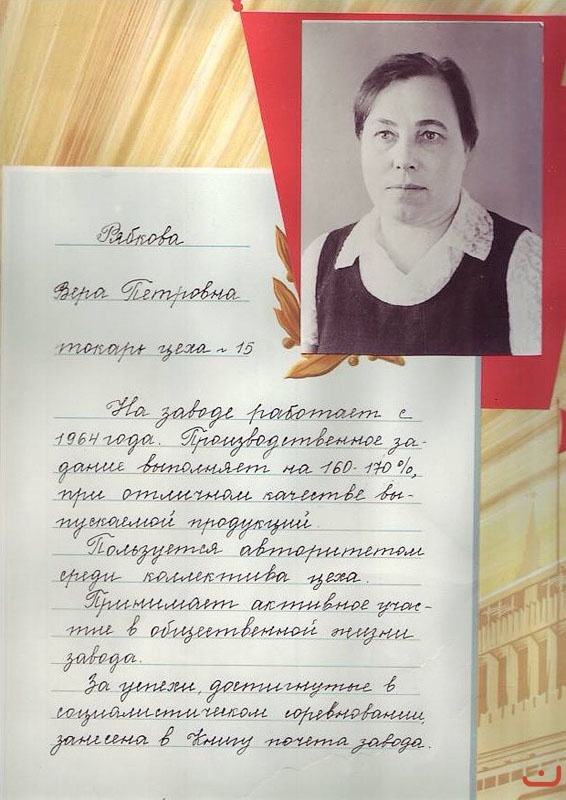 Рябкова
Вера Петровна
токарь цеха ~ 15
На заводе работает с
1964 года. Производственное за-
дание выполняет на 160-170%,
при отличном качестве вы-
пускаемой продукций.
Пользуется авторитетом
среди коллектива цеха.
Принимает активное учас-
тие в общественной жизни
завода.
За успехи, достигнутые в
социалистическом соревновании,
занесена в Книгу почета завода.